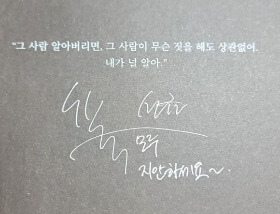 “그 사람 알아버리면, 그 사람이 무슨 짓을 해도 상관없어.
내가 널 알아.”
모두
지안하세요~.